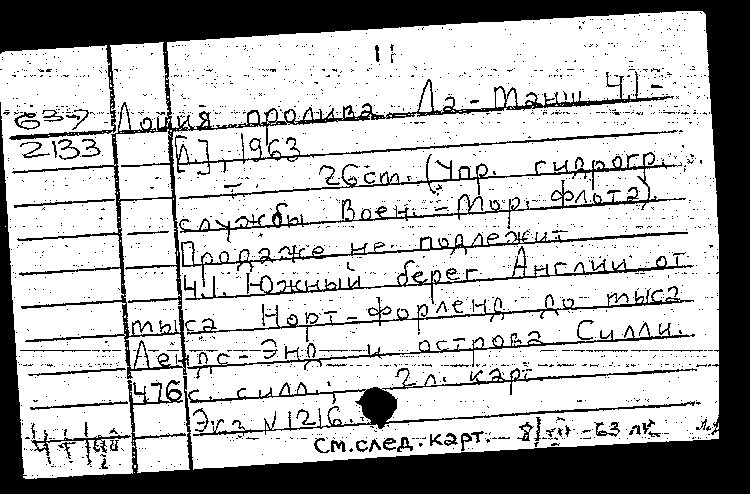 11
Лоция пролива Ла-Манш Ч.1 -
2133
[Л.], 1963
26 ст. (Упр. гидрогр.
службы Воен.-Мор. флота).
Продаже не подлежит
Ч.1. Южный берег Англии от
мыса Норт-Форленд до мыса
Лендс-Энд и острова Силли.
476 с. силл.; 2 л. карт
Экз N 1216.
См.след.карт. 8/XII-63